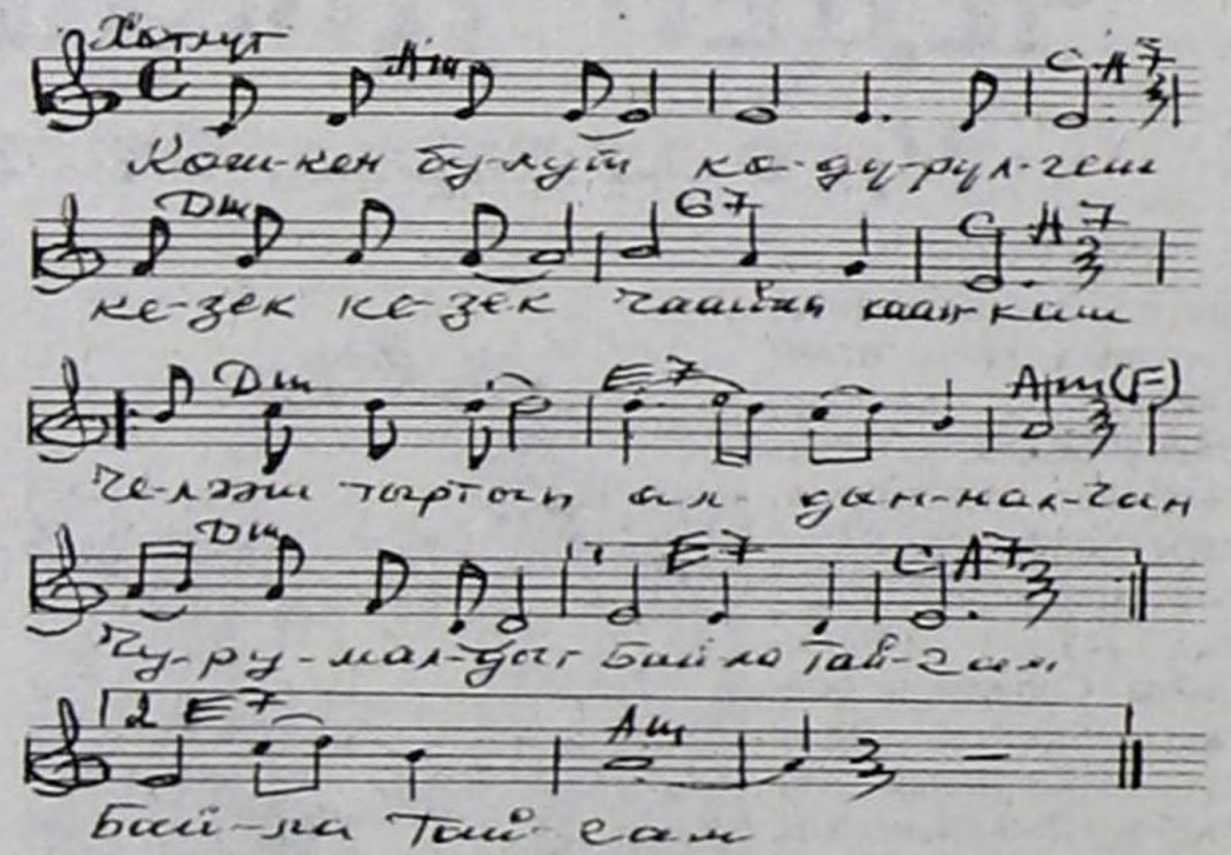 Am C A7
Кош-кен бу-лут ко-ду-рул-геш
Dm G7 C A7
ке-зек ке-зек
Dm E7 Am(F)
Че-лээш тыртып ал-дын-нал-чан
Dm 1 E7 C A7
Чу-ру-мал-дыг Бай-ла Тай-гам
2 E7 Am
Бай-ла Тай-гам